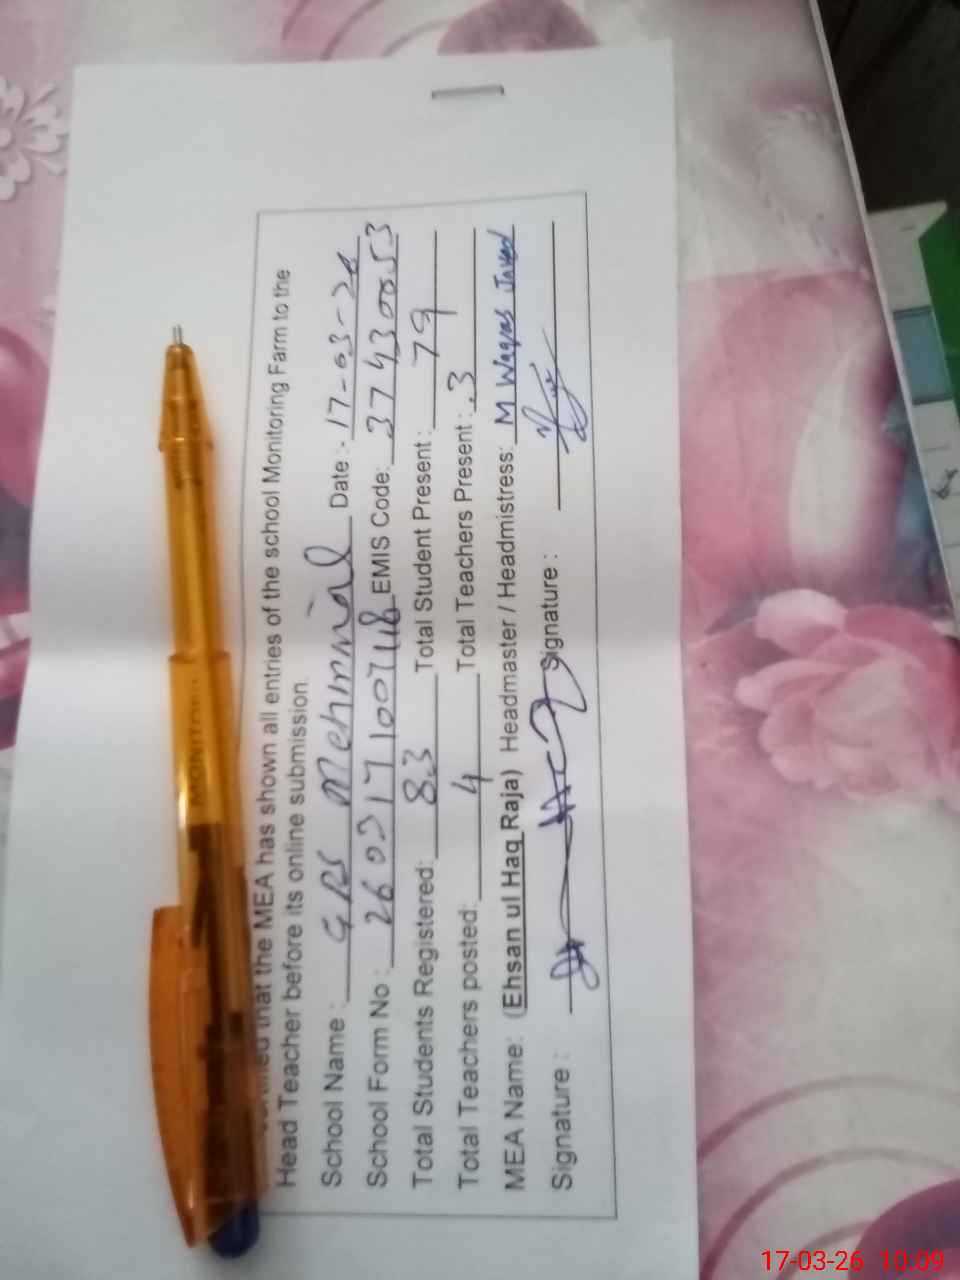 that the MEA has shown all entries of the school Monitoring Farm to the
Head Teacher before its online submission.
School Name: GPS Mehmnial Date:- 17-03-26
School Form No: 2603171007118 EMIS Code: 37430053
Total Students Registered: 83 Total Student Present: 79
Total Teachers posted: 4 Total Teachers Present: .3
MEA Name: (Ehsan ul Haq Raja) Headmaster / Headmistress: M Waqas Javed
Signature: Signature:
17-03-26 10:09